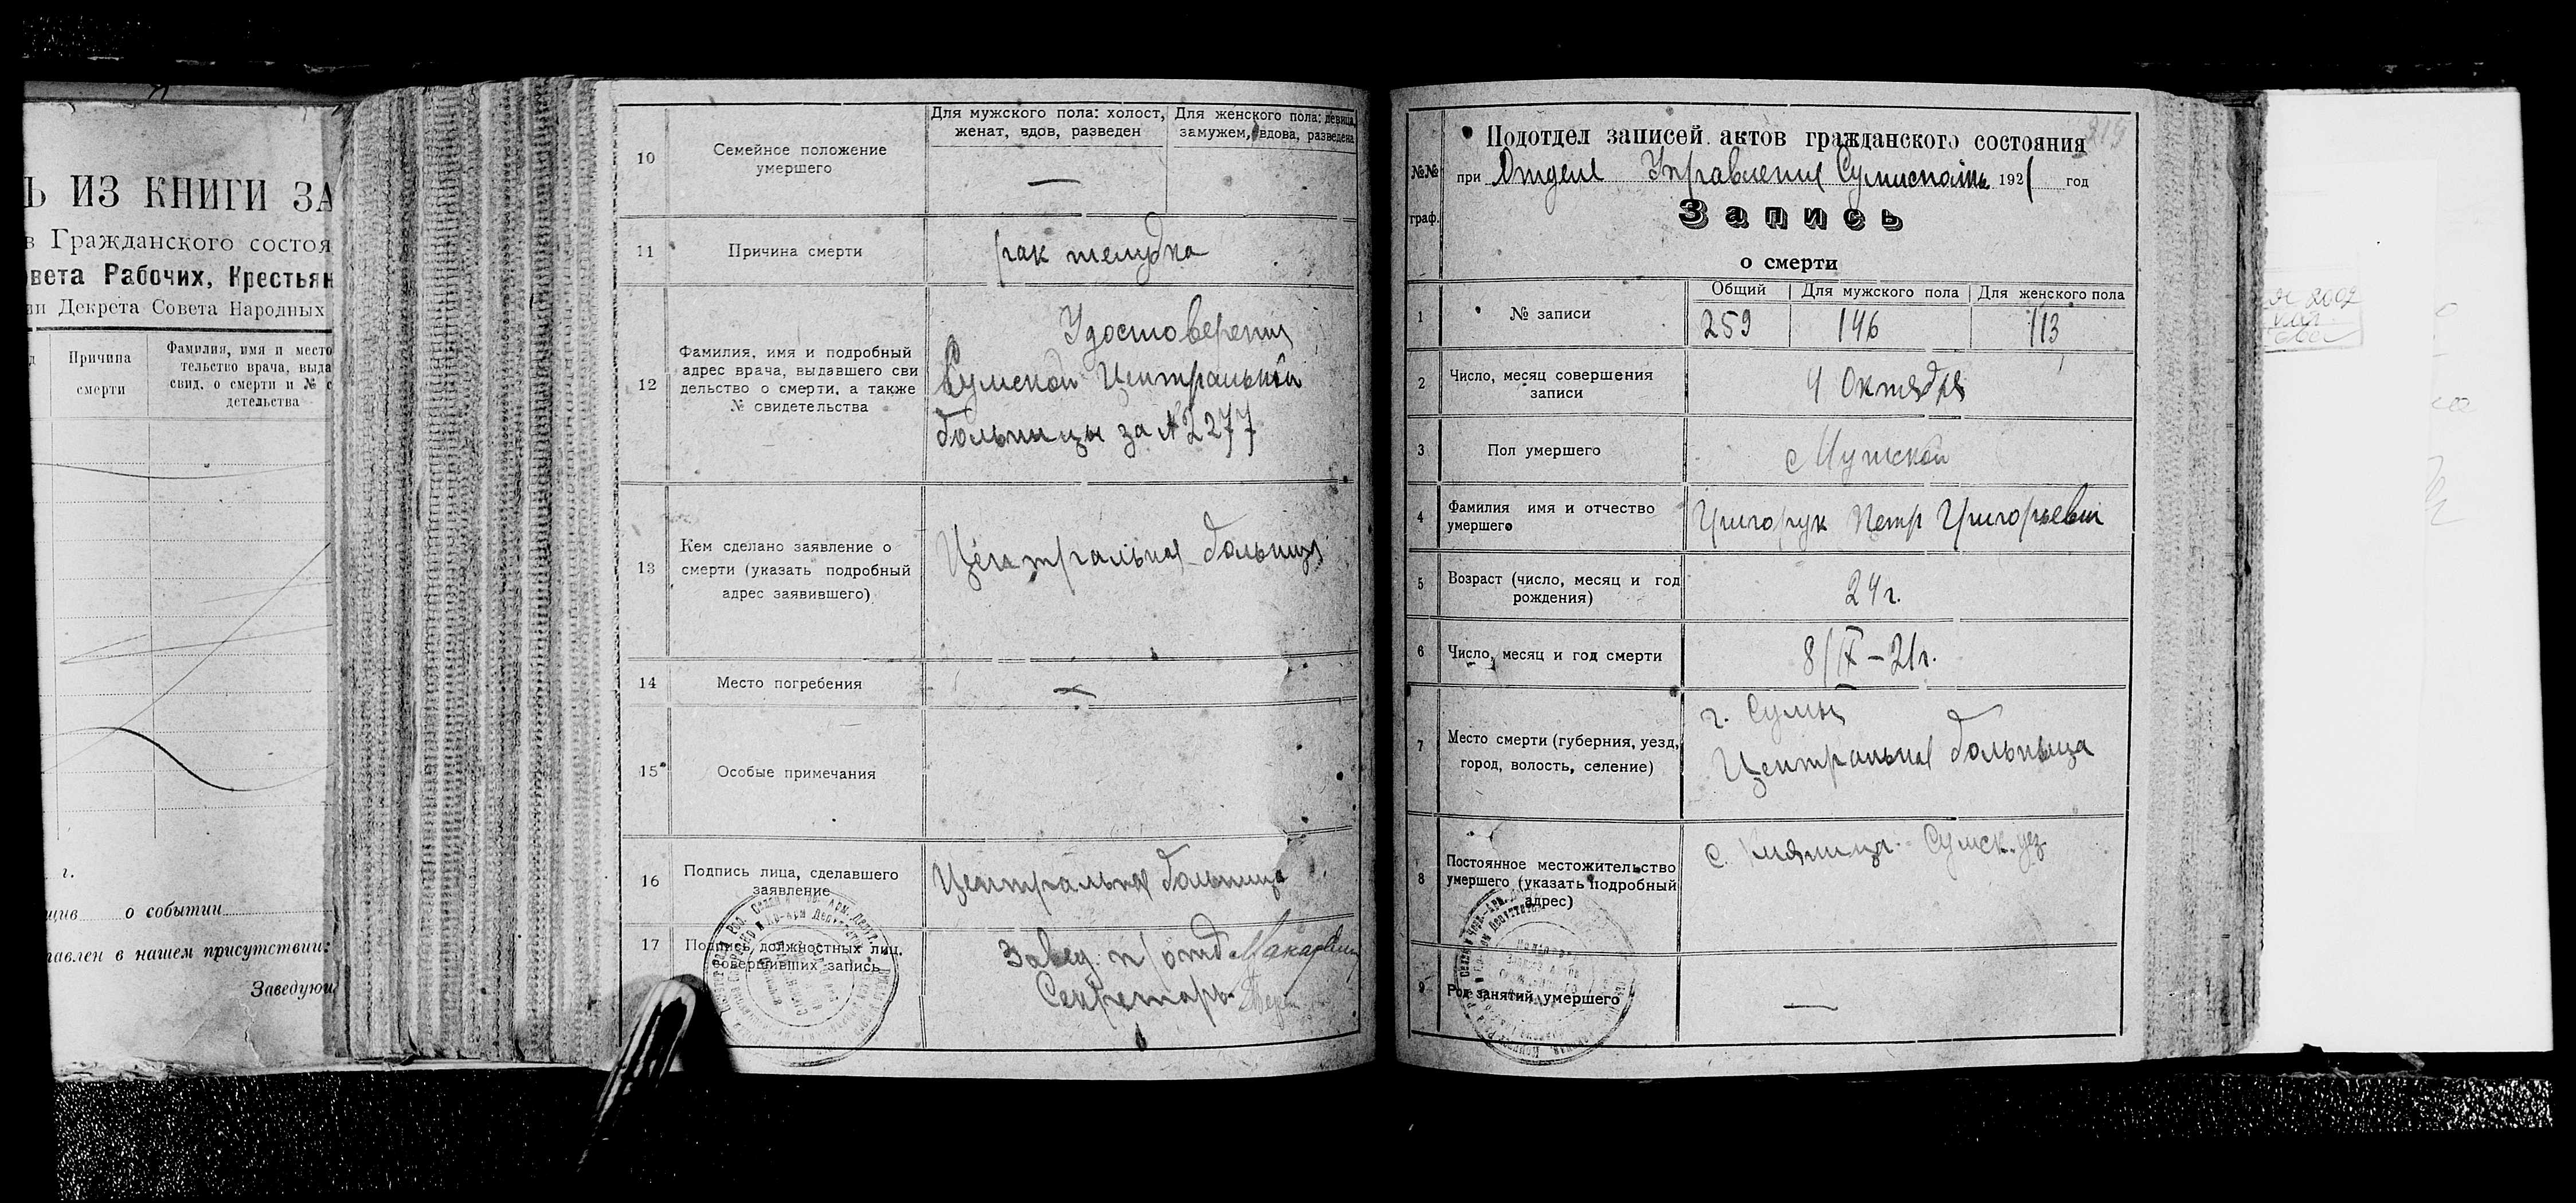 Ь ИЗ КНИГИ ЗА
в Гражданского состоя
вета Рабочих, Крестьян
ии Декрета Совета Народных
Причина
смерти
Фамилия, имя и место
тельство врача, выда
свид. о смерти и № с
детельства
г.
щив о событии
тавлен в нашем присутствии:
Заведую
10
Семейное положение
умершего
Для мужского пола: холост,
женат, вдов, разведен
Для женского пола: девица,
замужем, вдова, разведена
—
11
Причина смерти
рак желудка
12
Фамилия, имя и подробный
адрес врача, выдавшего сви
дельство о смерти, а также
№ свидетельства
Удостоверения
Сумской Центральной
больницы за № 2277
13
Кем сделано заявление о
смерти (указать подробный
адрес заявившего)
Центральная больница
14
Место погребения
—
15
Особые примечания
16
Подпись лица, сделавшего
заявление
Центральная больница
17
Подпись должностных лиц,
совершивших запись
Завед. п/отд
Секретарь
Подотдел записей актов гражданского состояния
№№
граф.
при Отделе Управления 1921 год
Запись
о смерти
1
№ записи
Общий
Для мужского пола
Для женского пола
259
146
113
2
Число, месяц совершения
записи
4 Октября
3
Пол умершего
Мужской
4
Фамилия имя и отчество
умершего
Григорук Петр Григорьевич
5
Возраст (число, месяц и год
рождения)
24 г.
6
Число, месяц и год смерти
8/IX – 21 г.
7
Место смерти (губерния, уезд,
город, волость, селение)
г. Сумы
Центральная больница
8
Постоянное местожительство
умершего (указать подробный
адрес)
с. Сумск. уез.
9
Род занятий умершего
—